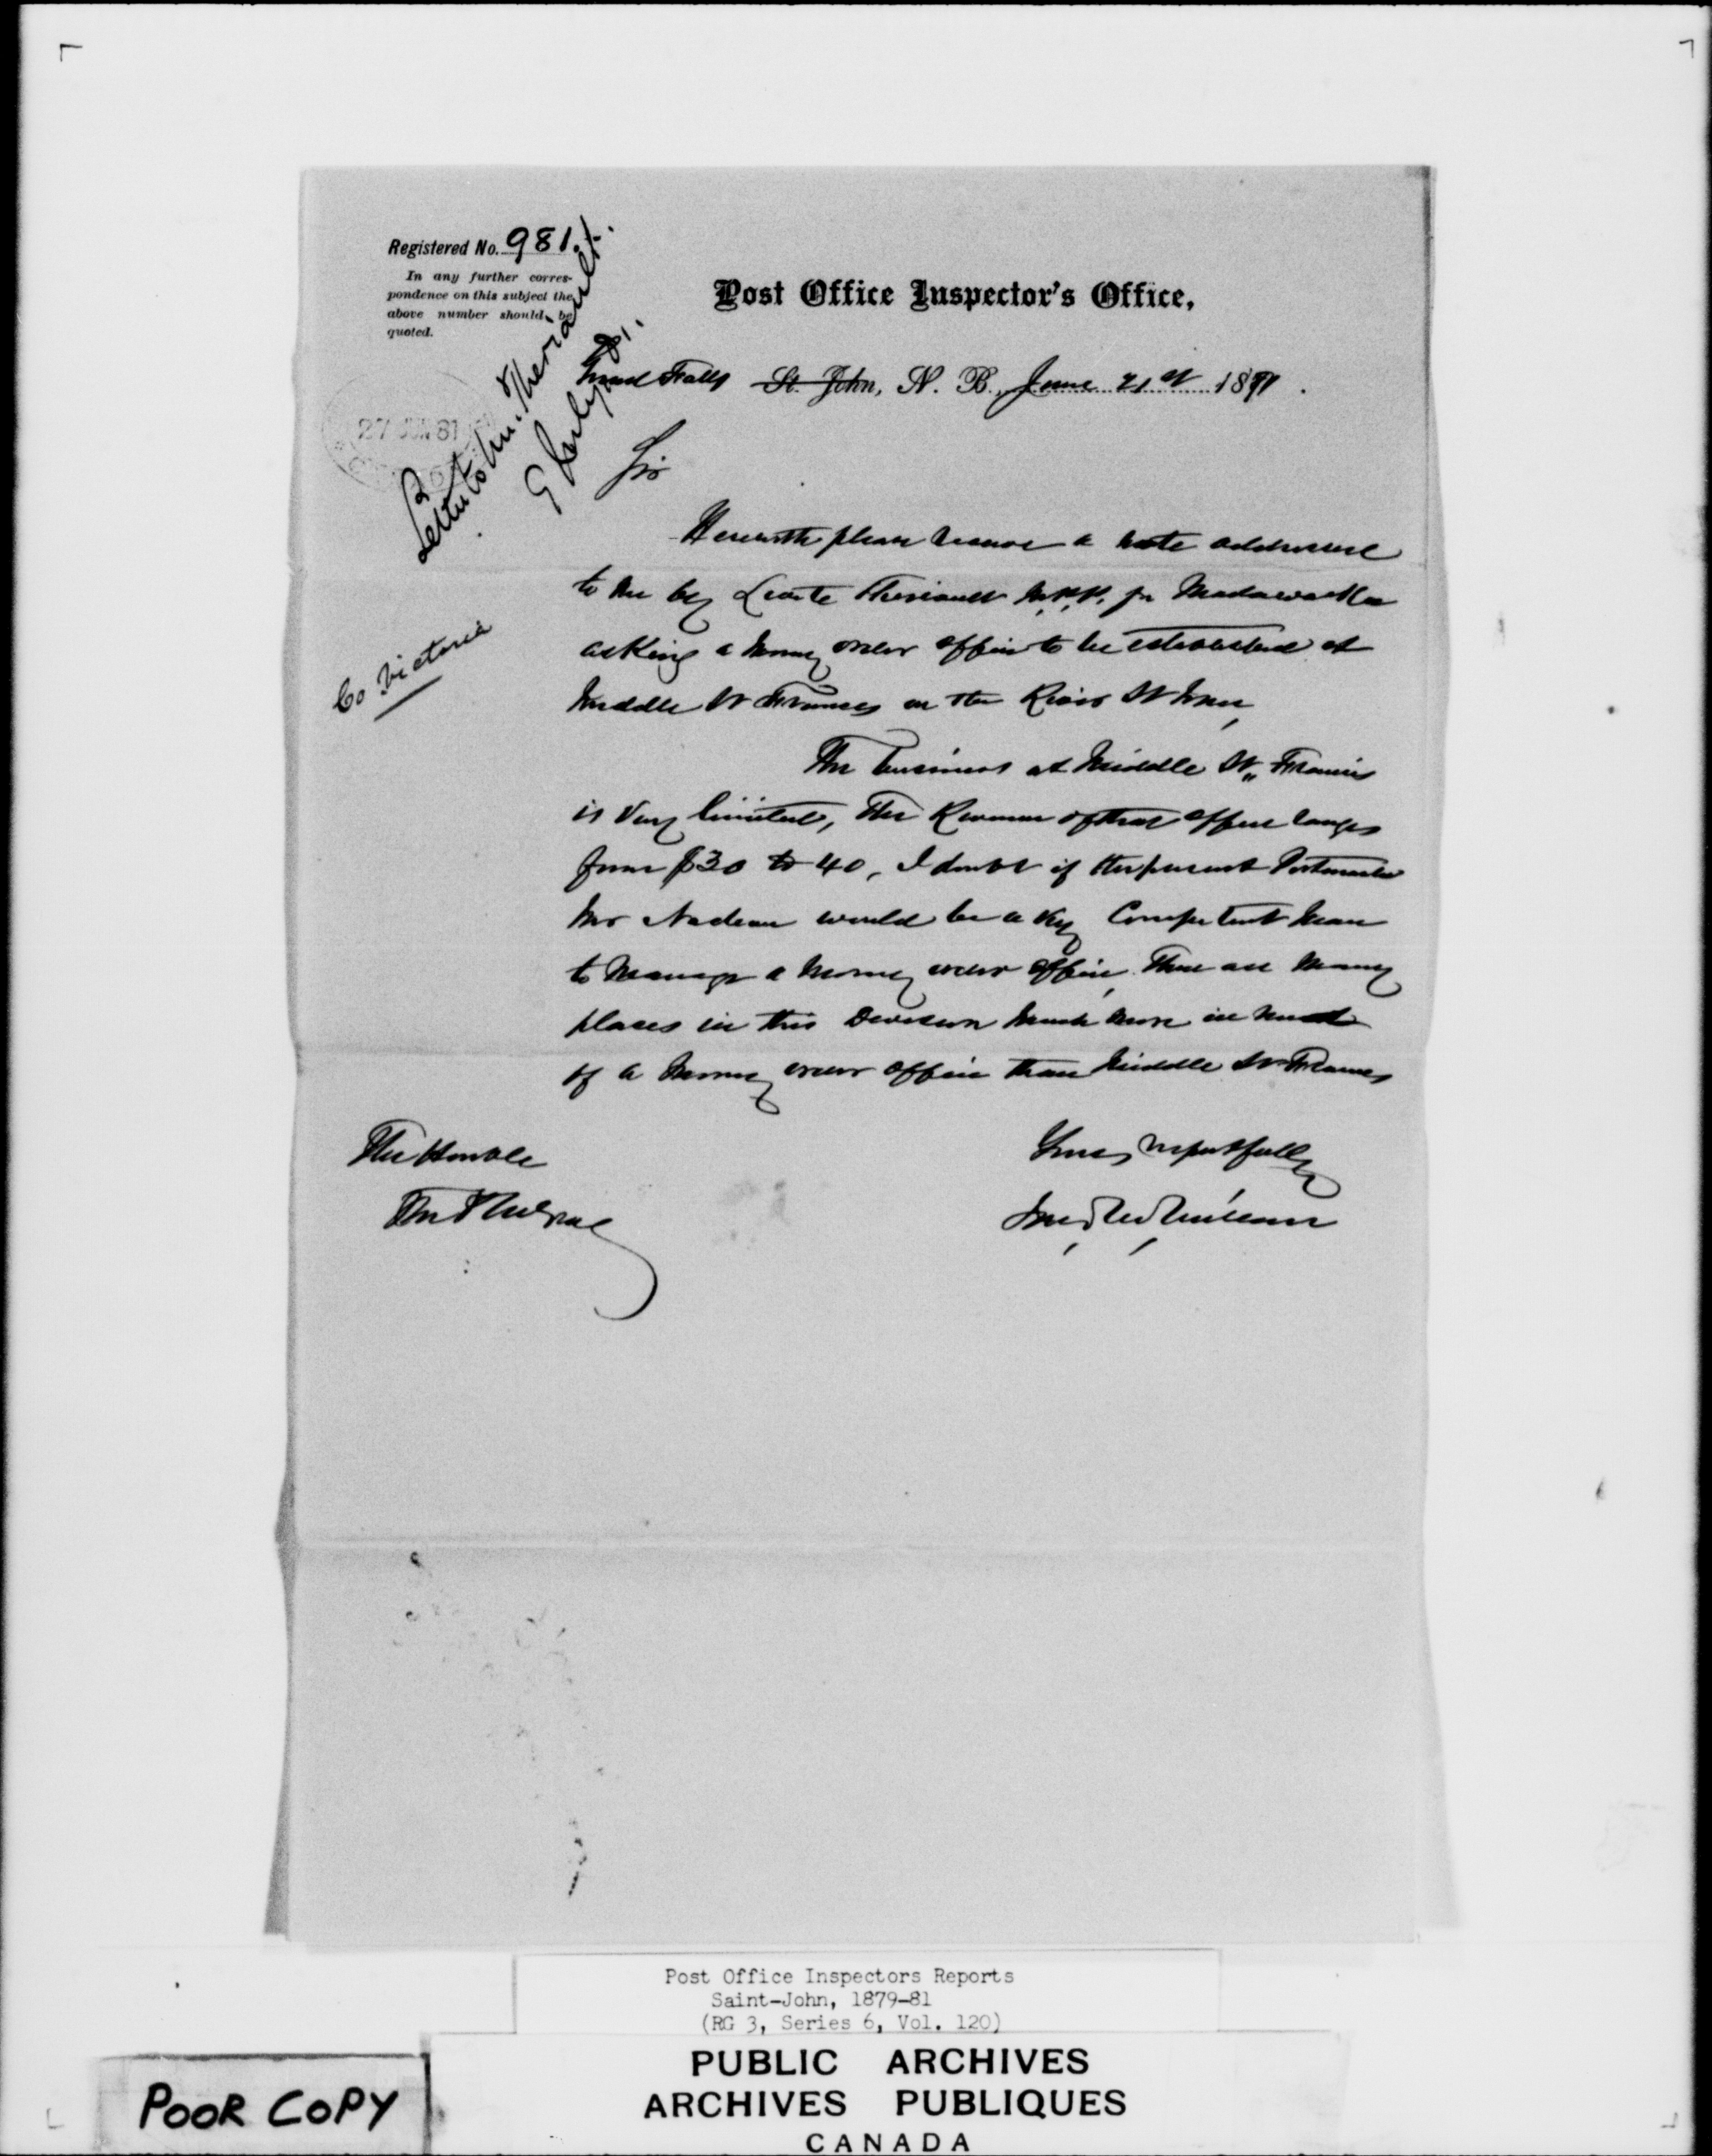 Registered No. 981.
In any further corres-
pondence on this subject the
above number should be
quoted.
Post Office Inspector's Office,
Grand Falls St. John, N. B., June 21st 1881.
27 JUN 81
Letter to Mr. Theriault.
9 July 81.
Sir
Herewith please receive a note addressed
to me by Levite Theriault M.P.P. for Madawaska
asking a money order office to be established at
Middle St Frances on the River St John,
Co Victoria
The business at Middle St. Francis
is very limited, The Revenue of that office ranges
from $30 to 40, I doubt if the present Postmaster
Mr Nadeau would be a very Competent man
to manage a money order office, There are many
places in this Division much more in need
of a money order office than Middle St Frances
The Honble
Yours respectfully
Post Office Inspectors Reports
Saint-John, 1879-81
(RG 3, Series 6, Vol. 120)
PUBLIC ARCHIVES
ARCHIVES PUBLIQUES
CANADA
POOR COPY